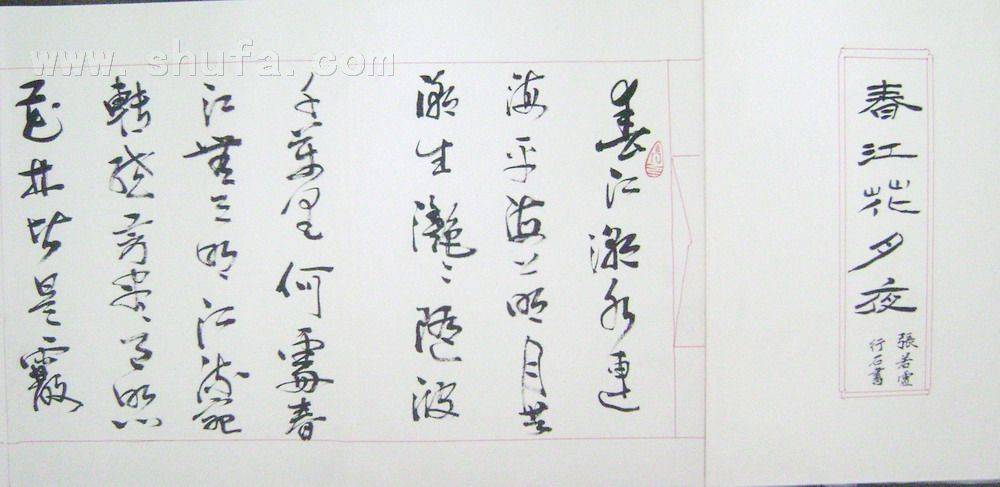 www.shufa.com
春江花月夜
張若虛
行石書
春江潮水連
海平海上明月共
潮生灧〻隨波
千萬里何處春
江無月明江流宛
轉繞芳甸月照
花林皆是霰